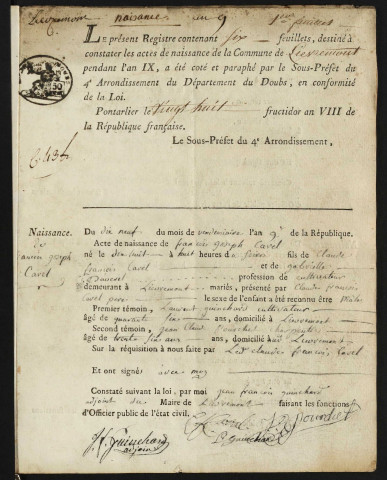 Lievremont naissances an 9 1er
LE présent Registre contenant six feuillets, destiné à
constater les actes de naissance de la Commune de Lievremont
pendant l'an IX, a été coté et paraphé par le Sous-Préfet du
4e Arrondissement du Département du Doubs, en conformité
de la Loi.
Pontarlier le vingt huit fructidor an VIII de
la République française.
Le Sous-Préfet du 4e Arrondissement,
Naissance.
de
francois joseph
Cavel
Du dix neuf du mois de vendemiaire l'an 9e de la République.
Acte de naissance de françois joseph Cavel
né le dix huit à huit heures du fils de Claude
francois Cavel et de
profession de cultivateur
demeurant à Lievremont mariés, présenté par Claude francois
Cavel pere le sexe de l'enfant a été reconnu être mâle
Premier témoin, Laurent guinchard cultivateur
âgé de quarante ans, domicilié à Lievremont
Second témoin, jean Claude
âgé de trente six ans, domicilié à Lievremont
Sur la réquisition à nous faite par Led. claude francois Cavel
Et ont signés avec moy
Constaté suivant la loi, par moi jean francois guinchard
adjoint du Maire de Lievremont faisant les fonctions
d'Officier public de l'état civil.
J f Guinchard
adjoint
L guinchard